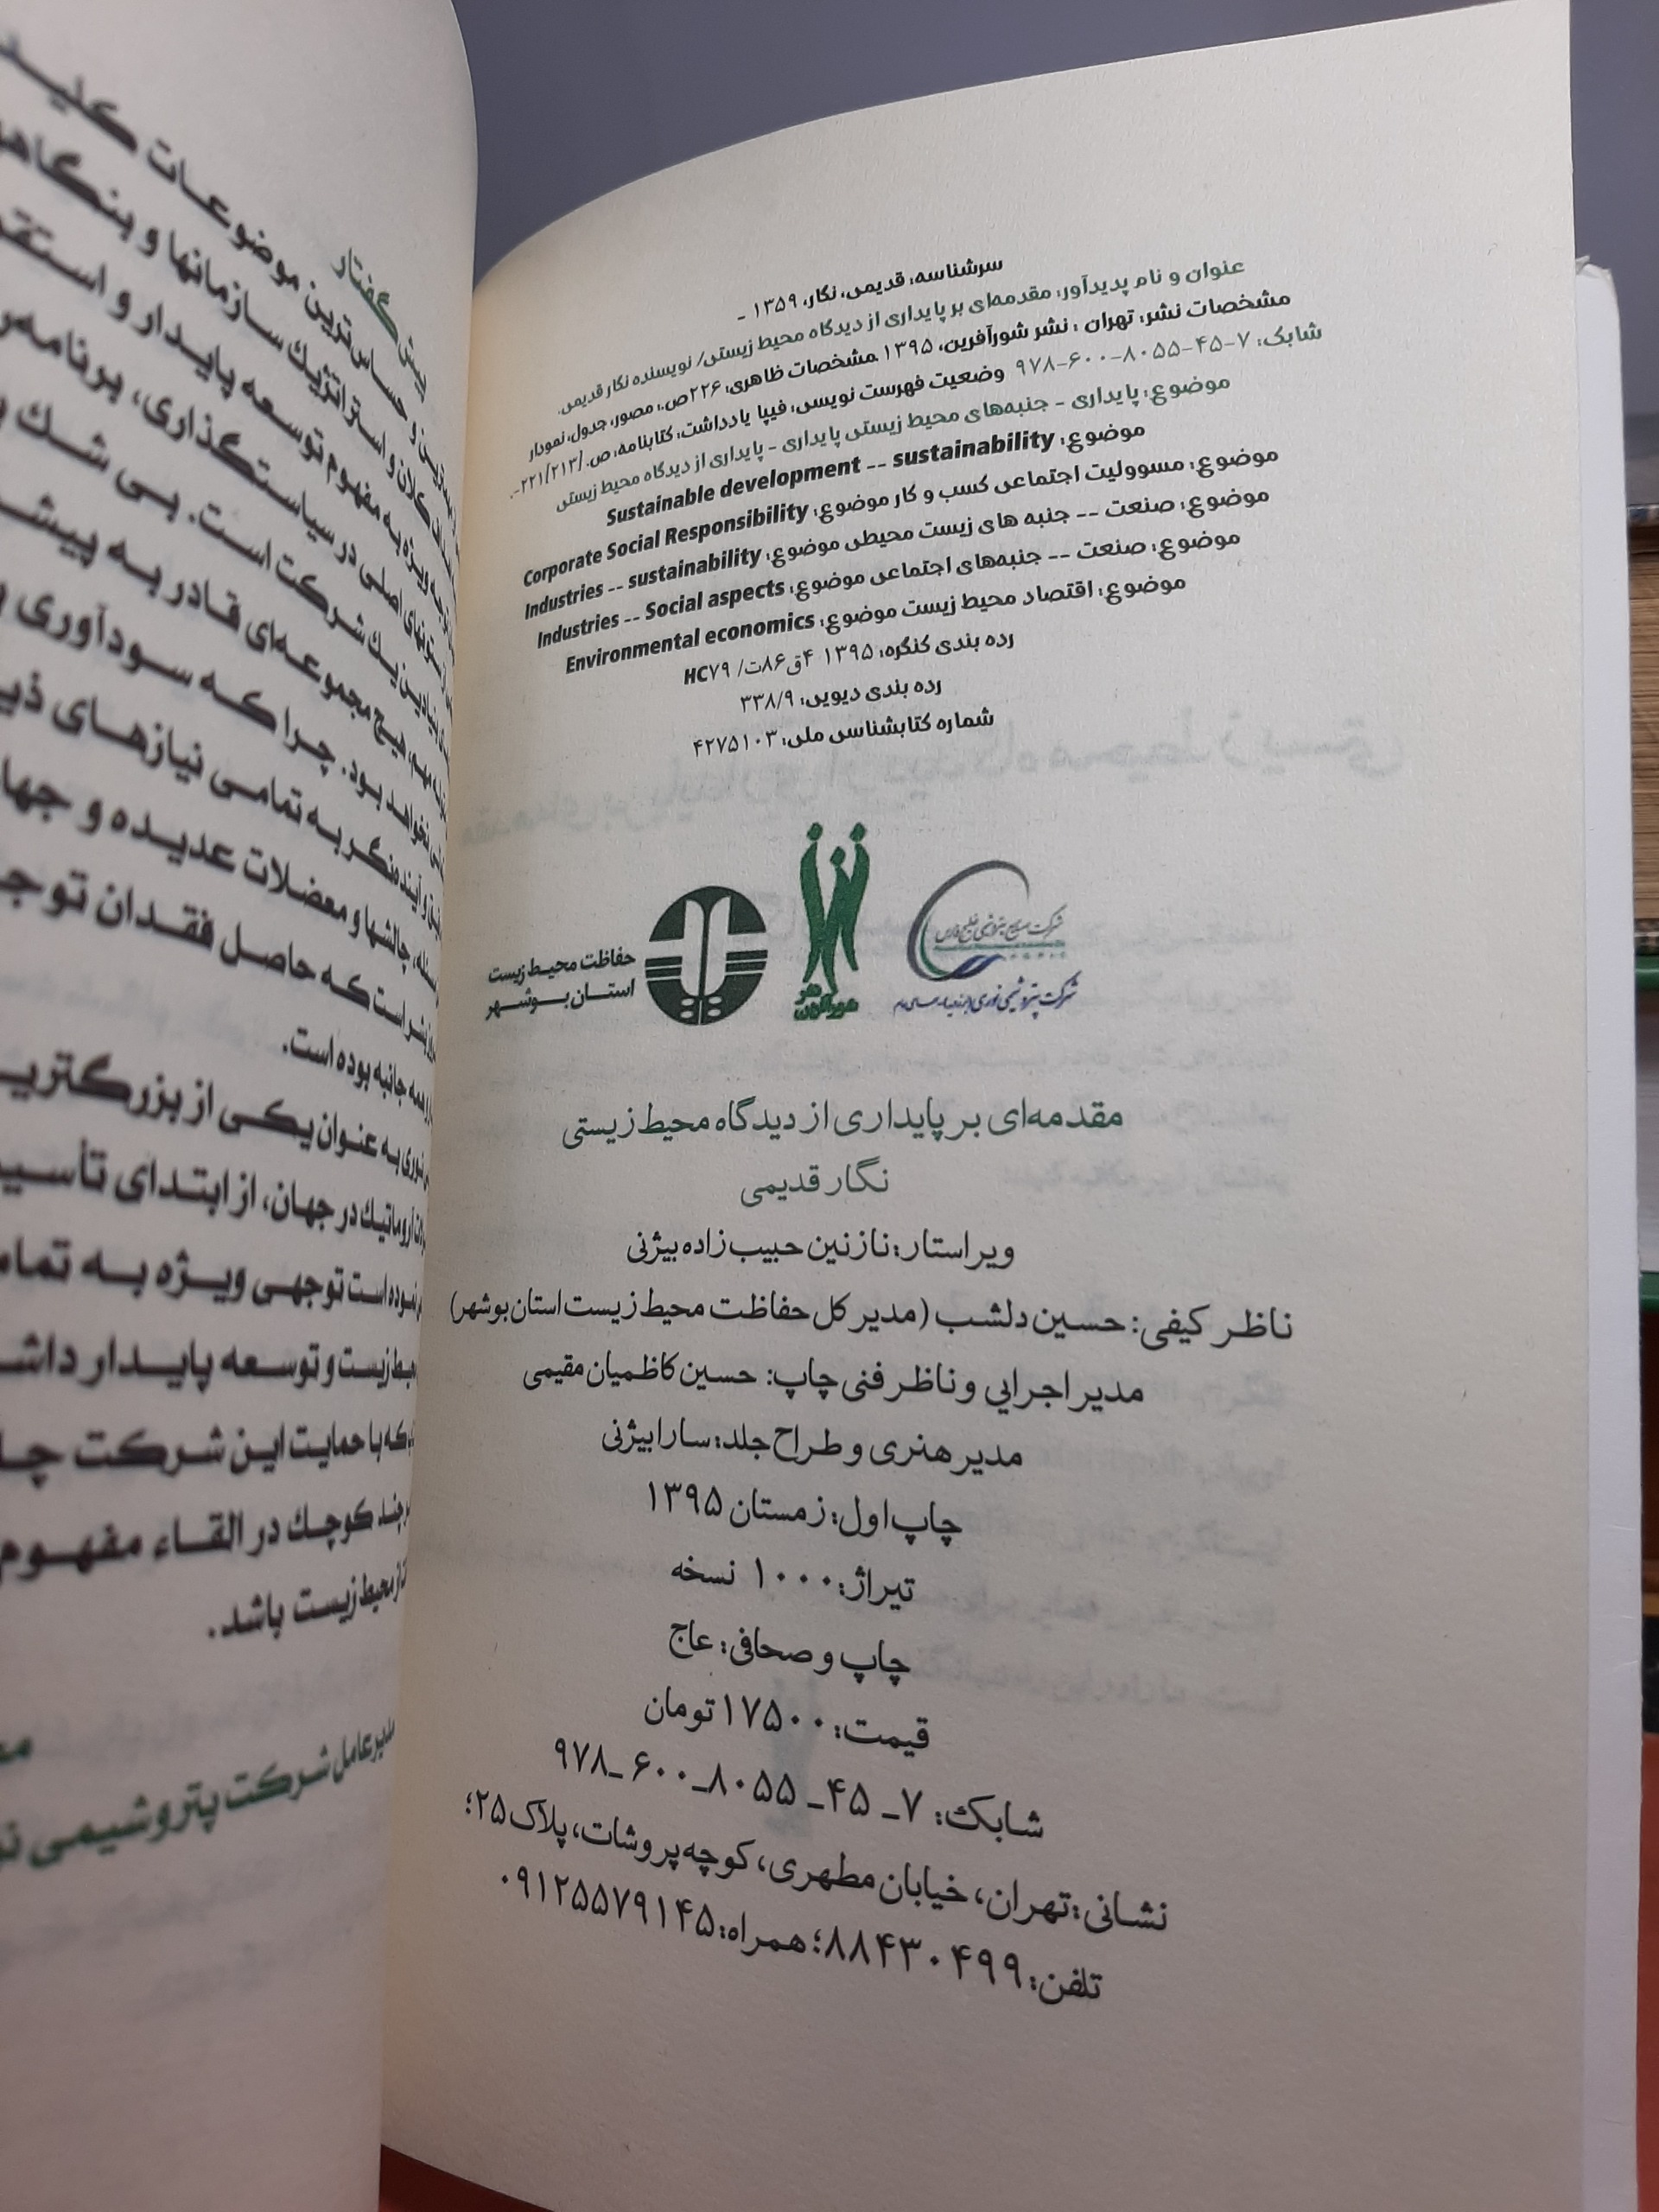 سرشناسه: قدیمی، نگار، ۱۳۵۹ -
عنوان و نام پدیدآور: مقدمه‌ای بر پایداری از دیدگاه محیط زیستی/ نویسنده نگار قدیمی.
مشخصات نشر: تهران : نشر شورآفرین، ۱۳۹۵ .مشخصات ظاهری: ۲۲۶ص.: مصور، جدول، نمودار
شابک: ۷-۴۵-۸۰۵۵-۶۰۰-۹۷۸ وضعیت فهرست نویسی: فیپا یادداشت: کتابنامه: ص. /۲۱۳/۲۲۱-.
موضوع: پایداری - جنبه‌های محیط زیستی پایداری - پایداری از دیدگاه محیط زیستی
موضوع: Sustainable development -- sustainability
موضوع: مسوولیت اجتماعی کسب و کار موضوع: Corporate Social Responsibility
موضوع: صنعت -- جنبه های زیست محیطی موضوع: Industries -- sustainability
موضوع: صنعت -- جنبه‌های اجتماعی موضوع: Industries -- Social aspects
موضوع: اقتصاد محیط زیست موضوع: Environmental economics
رده بندی کنگره: ۱۳۹۵ ۴ق۸۶ت/ HC۷۹
رده بندی دیویی: ۳۳۸/۹
شماره کتابشناسی ملی: ۴۲۷۵۱۰۳
شرکت صنایع پتروشیمی خلیج فارس
شرکت پتروشیمی نوری
نشر
شورآفرین
حفاظت محیط زیست
استان بوشهر
مقدمه‌ای بر پایداری از دیدگاه محیط زیستی
نگار قدیمی
ویراستار: نازنین حبیب زاده بیژنی
ناظر کیفی: حسین دلشب (مدیر کل حفاظت محیط زیست استان بوشهر)
مدیر اجرایی و ناظر فنی چاپ: حسین کاظمیان مقیمی
مدیر هنری و طراح جلد: سارا بیژنی
چاپ اول: زمستان ۱۳۹۵
تیراژ: ۱۰۰۰ نسخه
چاپ و صحافی: عاج
قیمت: ۱۷۵۰۰ تومان
شابک: ۷ـ ۴۵ـ ۸۰۵۵ـ۶۰۰ـ۹۷۸
نشانی: تهران، خیابان مطهری، کوچه پروشات، پلاک ۲۵؛
تلفن: ۸۸۴۳۰۴۹۹؛ همراه: ۰۹۱۲۵۵۷۹۱۴۵
پیش گفتار
و حساس‌ترین موضوعات
کلان و استراتژیک سازمانها و
ویژه به مفهوم توسعه پایدار و
ستونهای اصلی در سیاستگذاری،
بنیادین یک شرکت است. بی شک
مهم، هیچ مجموعه‌ای قادر به
نخواهد بود. چرا که سودآوری
و آینده‌نگر به تمامی نیازهای
چالشها و معضلات عدیده و
بشر است که حاصل فقدان
همه جانبه بوده است.
نوری به عنوان یکی از
آروماتیک در جهان، از ابتدای
نموده است توجهی ویژه به
محیط زیست و توسعه پایدار
که با حمایت این شرکت
هرچند کوچک در القاء مفهوم
از محیط زیست باشد.
مدیرعامل شرکت پتروشیمی